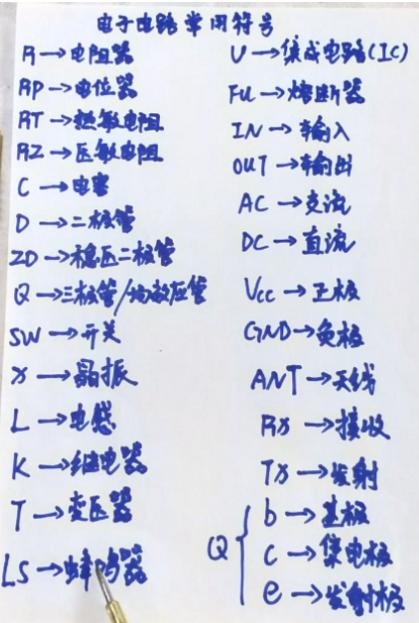 电子电路常用符号
R→电阻器
RP→电位器
RT→热敏电阻
RZ→压敏电阻
C→电容
D→二极管
ZD→稳压二极管
Q→三极管/场效应管
SW→开关
X→晶振
L→电感
K→继电器
T→变压器
LS→蜂鸣器
U→集成电路(IC)
FU→熔断器
IN→输入
OUT→输出
AC→交流
DC→直流
Vcc→正极
GND→负极
ANT→天线
RX→接收
TX→发射
Q
b→基极
c→集电极
e→发射极